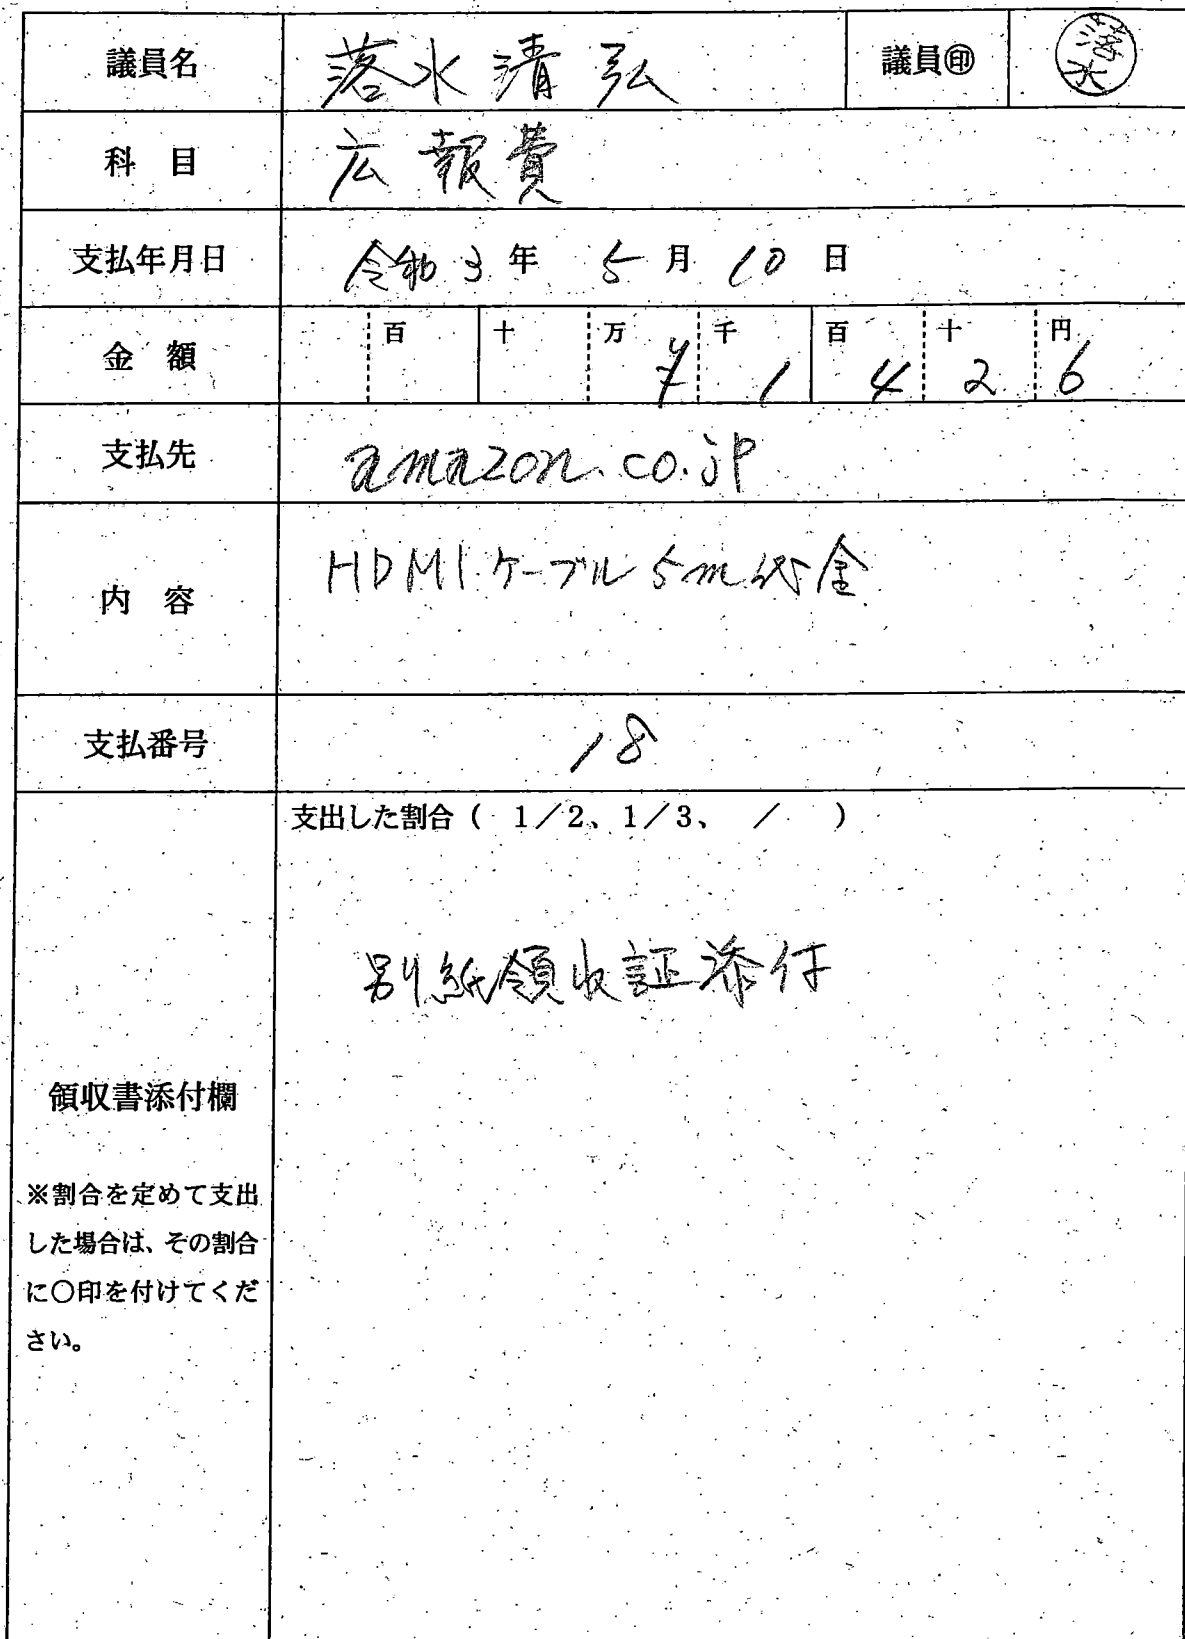 議員名 落水清弘 議員㊞ 落水
科 目 広報費
支払年月日 令和3年 5月 10日
金 額 百 十 万 ¥ 千 1 百 4 十 2 円 6
支払先 amazon.co.jp
内 容 HDMIケーブル5m代金
支払番号 18
支出した割合( 1/2、1/3、 / )
別紙領収証添付
領収書添付欄
※割合を定めて支出
した場合は、その割合
に○印を付けてくだ
さい。